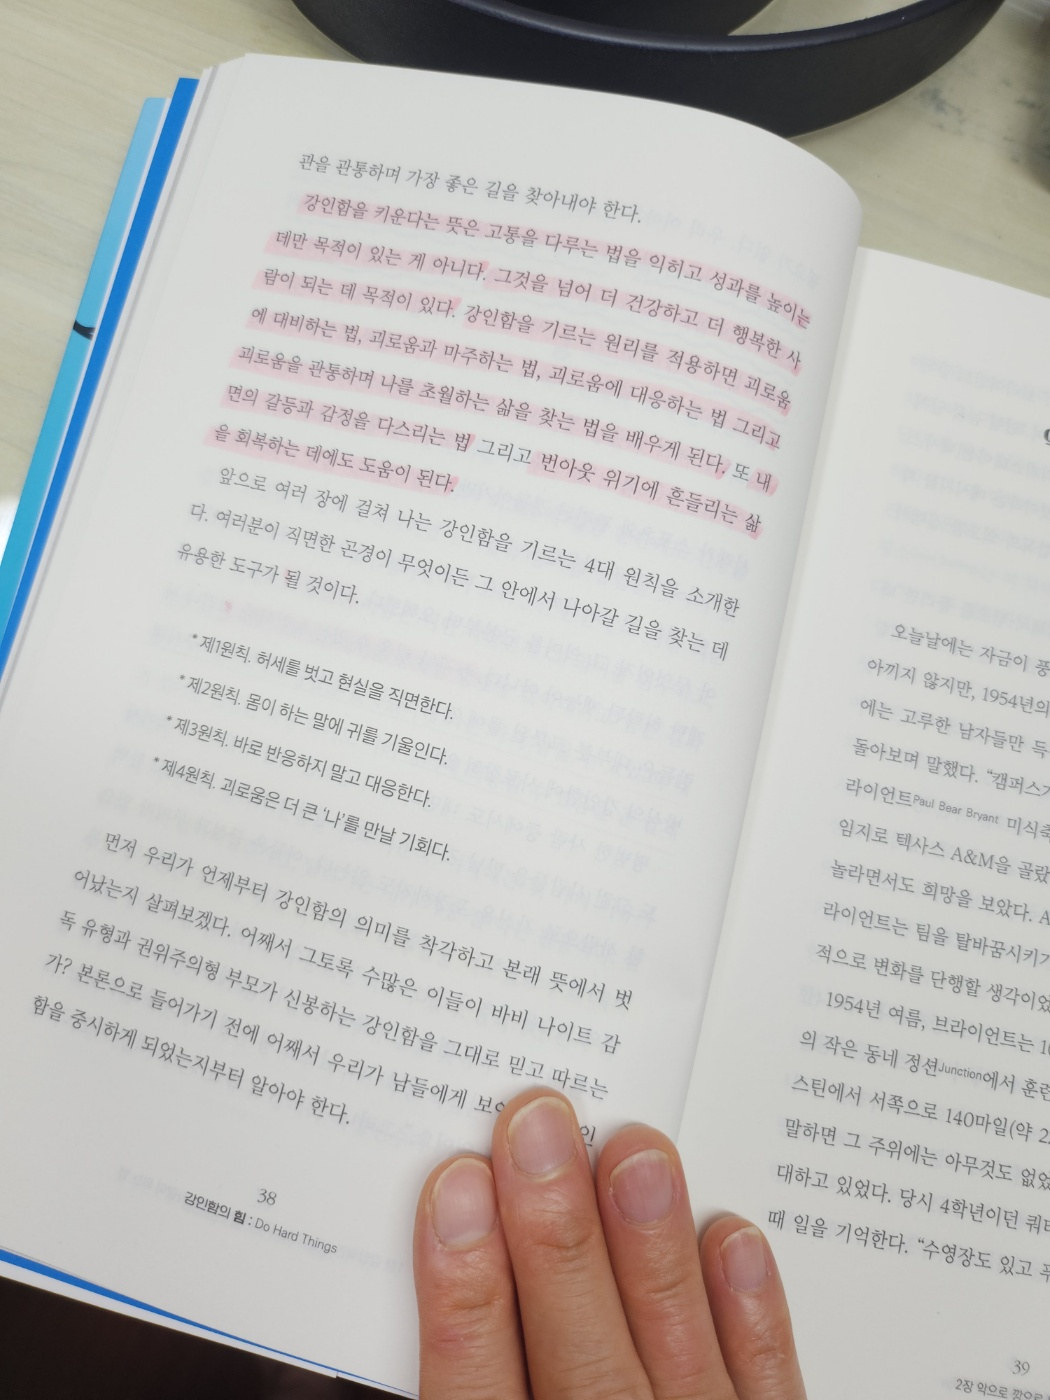 관을 관통하며 가장 좋은 길을 찾아내야 한다.
강인함을 키운다는 뜻은 고통을 다루는 법을 익히고 성과를 높이는
데만 목적이 있는 게 아니다. 그것을 넘어 더 건강하고 더 행복한 사
람이 되는 데 목적이 있다. 강인함을 기르는 원리를 적용하면 괴로움
에 대비하는 법, 괴로움과 마주하는 법, 괴로움에 대응하는 법 그리고
괴로움을 관통하며 나를 초월하는 삶을 찾는 법을 배우게 된다. 또 내
면의 갈등과 감정을 다스리는 법 그리고 번아웃 위기에 흔들리는 삶
을 회복하는 데에도 도움이 된다.
앞으로 여러 장에 걸쳐 나는 강인함을 기르는 4대 원칙을 소개한
다. 여러분이 직면한 곤경이 무엇이든 그 안에서 나아갈 길을 찾는 데
유용한 도구가 될 것이다.
* 제1원칙. 허세를 벗고 현실을 직면한다.
* 제2원칙. 몸이 하는 말에 귀를 기울인다.
* 제3원칙. 바로 반응하지 말고 대응한다.
* 제4원칙. 괴로움은 더 큰 ‘나’를 만날 기회다.
먼저 우리가 언제부터 강인함의 의미를 착각하고 본래 뜻에서 벗
어났는지 살펴보겠다. 어째서 그토록 수많은 이들이 바비 나이트 감
독 유형과 권위주의형 부모가 신봉하는 강인함을 그대로 믿고 따르는
가? 본론으로 들어가기 전에 어째서 우리가 남들에게 인
함을 중시하게 되었는지부터 알아야 한다.
38
강인함의 힘 : Do Hard Things
오늘날에는 자금이 풍
아끼지 않지만, 1954년의
에는 고루한 남자들만 득
돌아보며 말했다. “캠퍼스
라이언트Paul Bear Bryant 미식축
임지로 텍사스 A&M을 골랐
놀라면서도 희망을 보았다. A
라이언트는 팀을 탈바꿈시키
적으로 변화를 단행할 생각이었
1954년 여름, 브라이언트는
의 작은 동네 정션Junction에서 훈련
스틴에서 서쪽으로 140마일(약
말하면 그 주위에는 아무것도 없었
대하고 있었다. 당시 4학년이던 쿼터
때 일을 기억한다. “수영장도 있고
39
2장